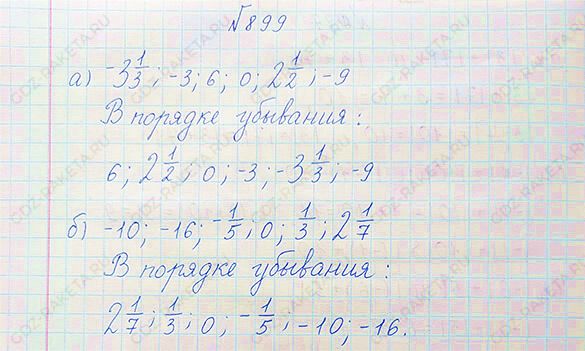 №899
а) -3 1/3; -3; 6; 0; 2 1/2; -9
В порядке убывания:
6; 2 1/2; 0; -3; -3 1/3; -9
б) -10; -16; -1/5; 0; 1/3; 2 1/7
В порядке убывания:
2 1/7; 1/3; 0; -1/5; -10; -16.
GDZ-RAKETA.RU